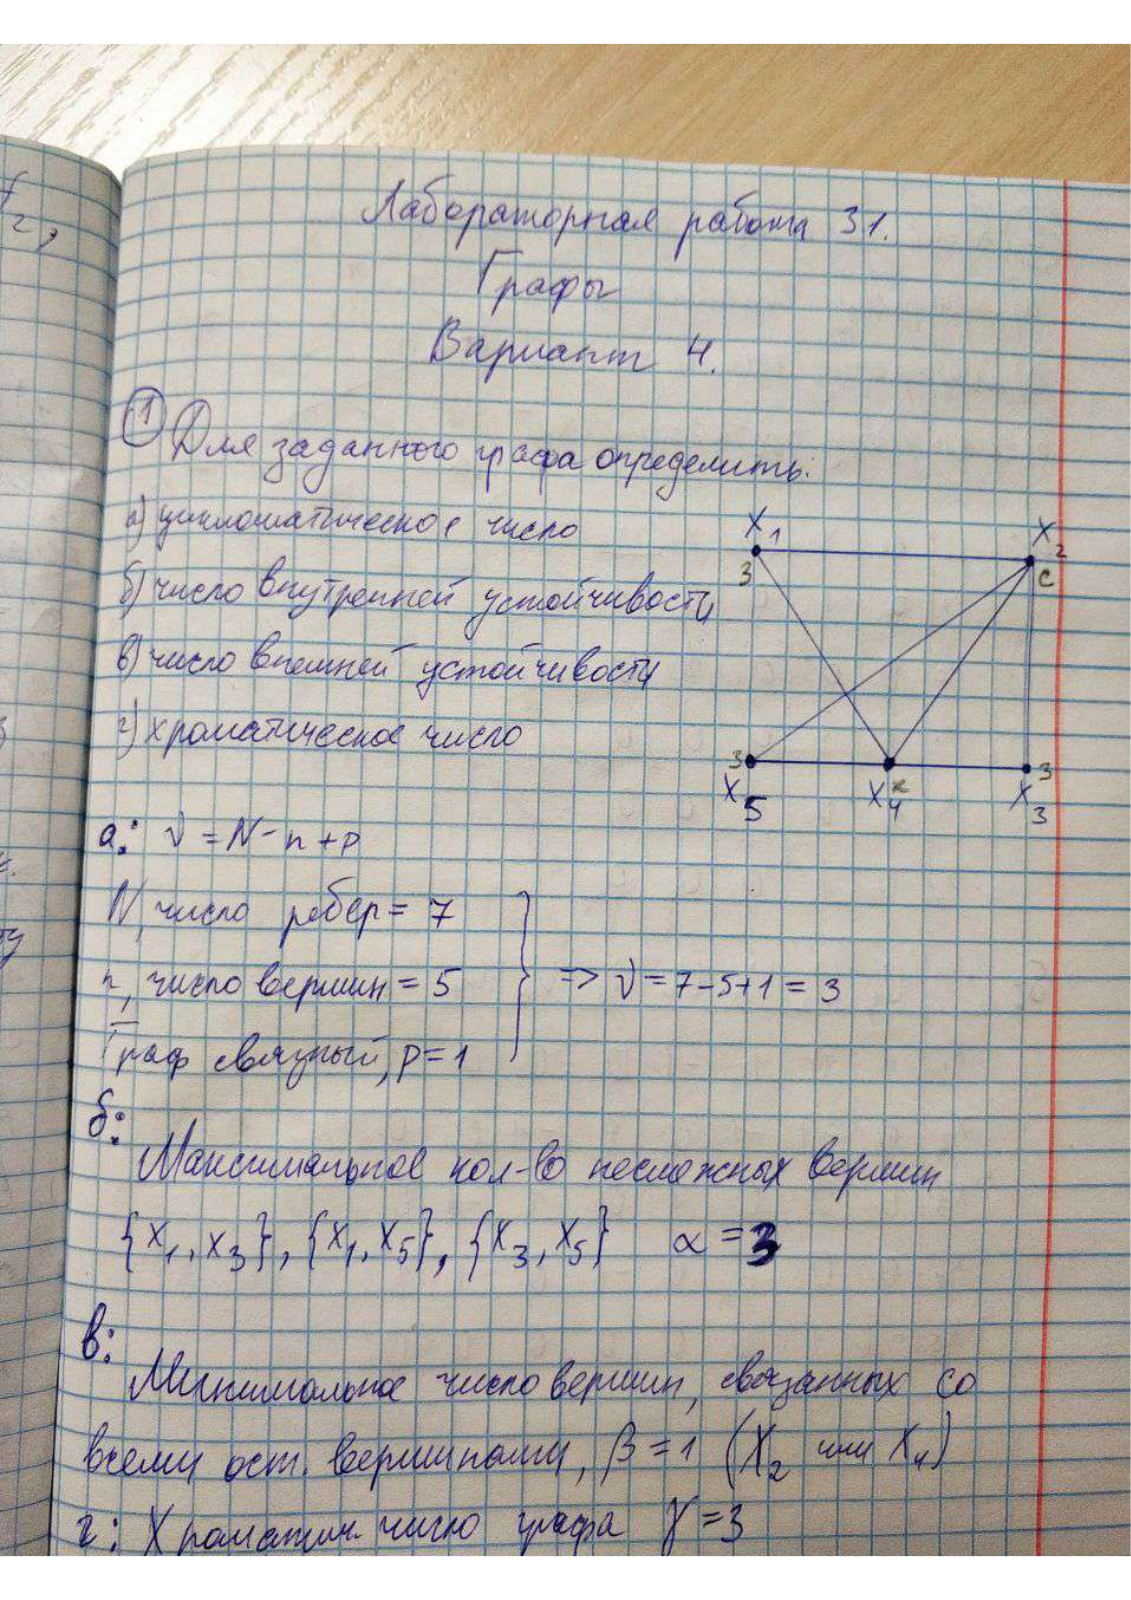 Лабораторная работа 31.
Графы
Вариант 4.
① Для заданного графа определить:
а) цикломатическое число
б) число внутренней устойчивости
в) число внешней устойчивости
г) хроматическое число
X1
X2
3
с
3
к
3
X5
X4
X3
а: ν = N - n + p
N, число ребер = 7
n, число вершин = 5
=> ν = 7-5+1 = 3
Граф связный, p = 1
б:
Максимальное кол-во несмежных вершин
{X1, X3}, {X1, X5}, {X3, X5} α = 3
в:
Минимальное число вершин, связанных со
всеми ост. вершинами, β = 1 (X2 или X4)
г: Хроматич. число графа γ = 3